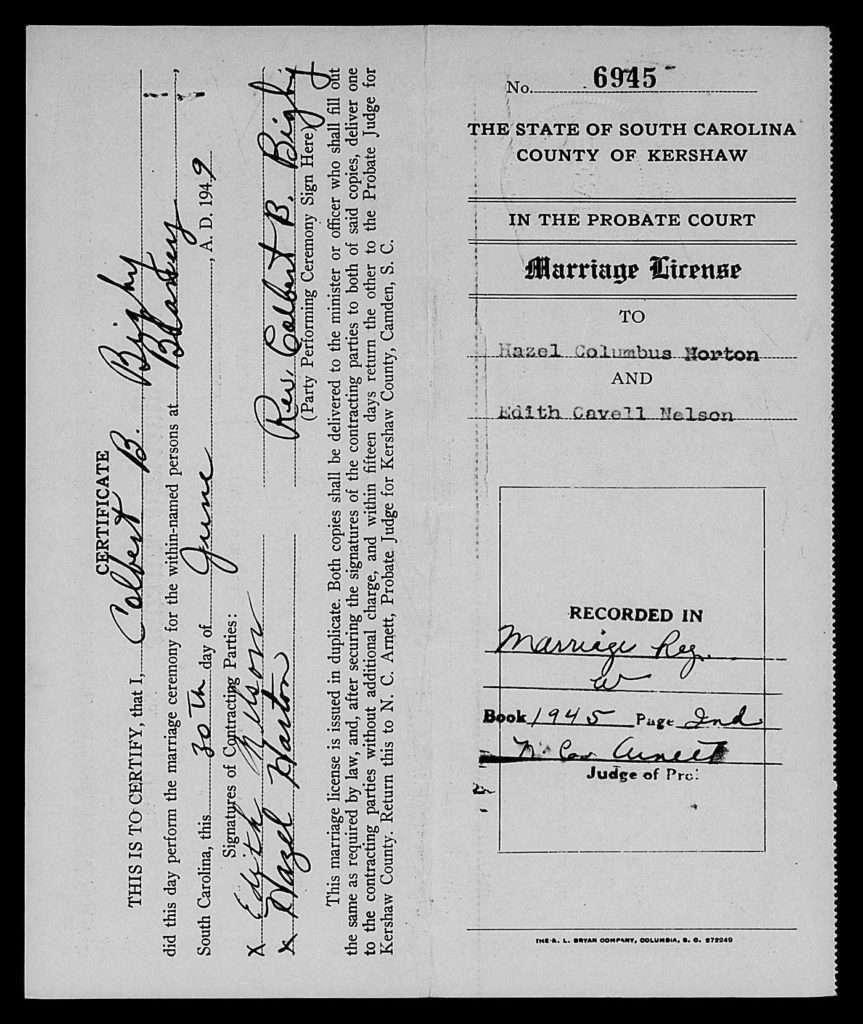 CERTIFICATE
THIS IS TO CERTIFY, that I, Colbert B. Bigby
did this day perform the marriage ceremony for the within-named persons at Blaney,
South Carolina, this 30th day of June, A. D. 1949
Signatures of Contracting Parties:
X Edith Nelson
X Hazel Horton Rev. Colbert B. Bigby
(Party Performing Ceremony Sign Here)
This marriage license is issued in duplicate. Both copies shall be delivered to the minister or officer who shall fill out
the same as required by law, and, after securing the signatures of the contracting parties to both of said copies, deliver one
to the contracting parties without additional charge, and within fifteen days return the other to the Probate Judge for
Kershaw County. Return this to N. C. Arnett, Probate Judge for Kershaw County, Camden, S. C.
No. 6945
THE STATE OF SOUTH CAROLINA
COUNTY OF KERSHAW
IN THE PROBATE COURT
Marriage License
TO
Hazel Columbus Horton
AND
Edith Cavell Nelson
RECORDED IN
Marriage Reg.
W
Book 1945 Page 2nd
N. C. Arnett
Judge of Pro
THE R. L. BRYAN COMPANY, COLUMBIA, S. C. 272249